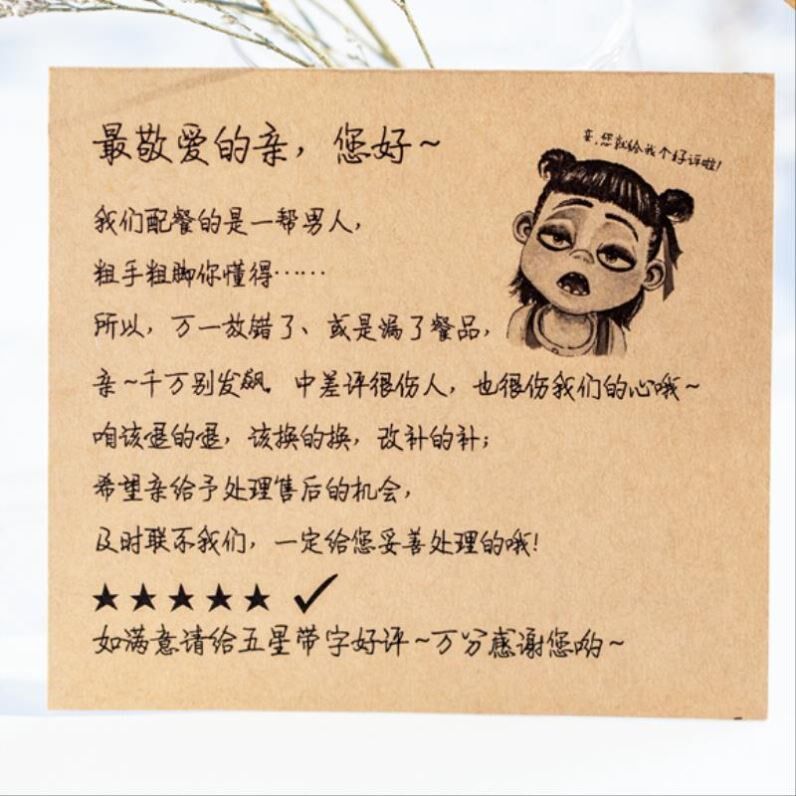 最敬爱的亲，您好~
亲，您就给我个好评啦！
我们配餐的是一帮男人，
粗手粗脚你懂得……
所以，万一放错了、或是漏了餐品，
亲~千万别发飙。中差评很伤人，也很伤我们的心哦~
咱该退的退，该换的换，改补的补；
希望亲给予处理售后的机会，
及时联系我们，一定给您妥善处理的哦！
★★★★★ ✓
如满意请给五星带字好评~万分感谢您哟~